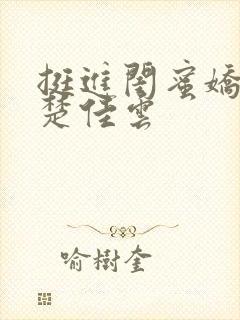 挺進閨蜜嬌
楚佳雲
喻樹奎